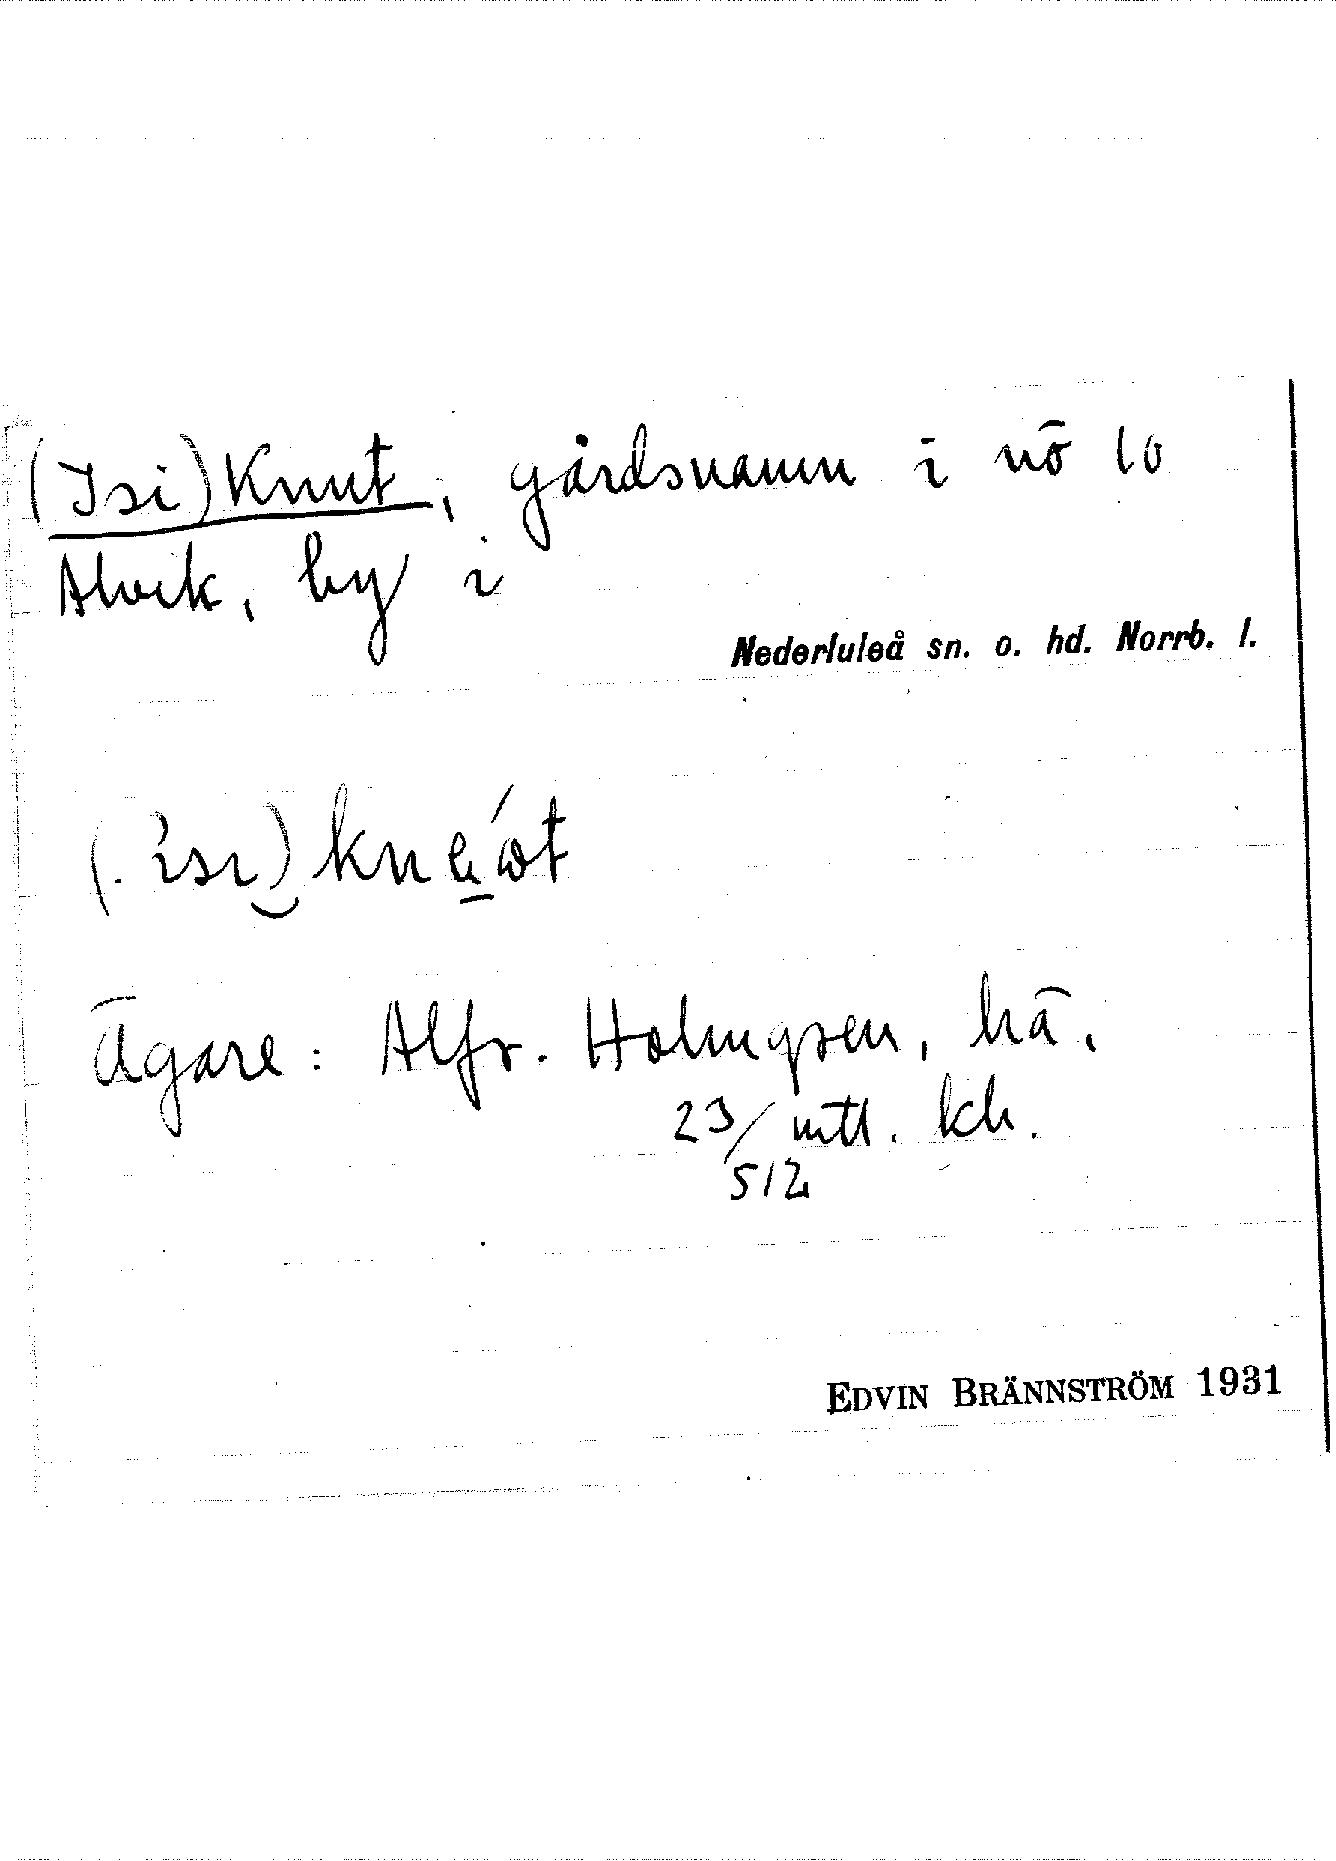 (Isi)Knut, gårdsnamn i nö 10
Alvik, by i
Nederluleå sn. o. hd. Norrb. l.
Ägare: Alfr. Holmgren, hä.
23/512 mtl. kr.
EDVIN BRÄNNSTRÖM 1931